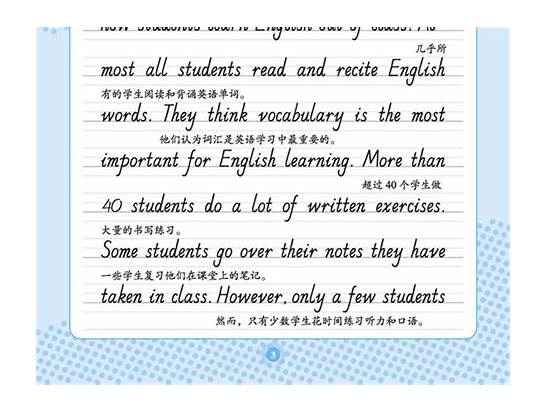 how students learn English out of class? Al-
几乎所
most all students read and recite English
有的学生阅读和背诵英语单词。
words. They think vocabulary is the most
他们认为词汇是英语学习中最重要的。
important for English learning. More than
超过 40 个学生做
40 students do a lot of written exercises.
大量的书写练习。
Some students go over their notes they have
一些学生复习他们在课堂上的笔记。
taken in class. However, only a few students
然而，只有少数学生花时间练习听力和口语。
3